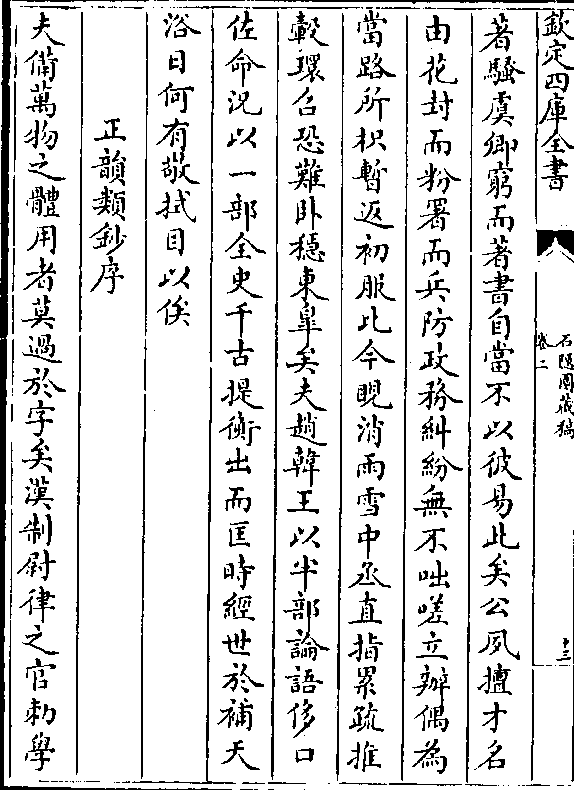 欽定四庫全書
石隱園藏稿
卷二
十三
著騷虞卿窮而著書自當不以彼易此矣公夙擅才名
由花封而粉署而兵防政務糾紛無不咄嗟立辦偶為
當路所枳暫返初服比今晛消雨雪中丞直指累疏推
轂環召恐難卧穩東臯矣夫趙韓王以半部論語侈口
佐命況以一部全史千古提衡出而匡時經世於補天
浴日何有敬拭目以俟
正韻類鈔序
夫備萬物之體用者莫過於字矣漢制尉律之官勑學